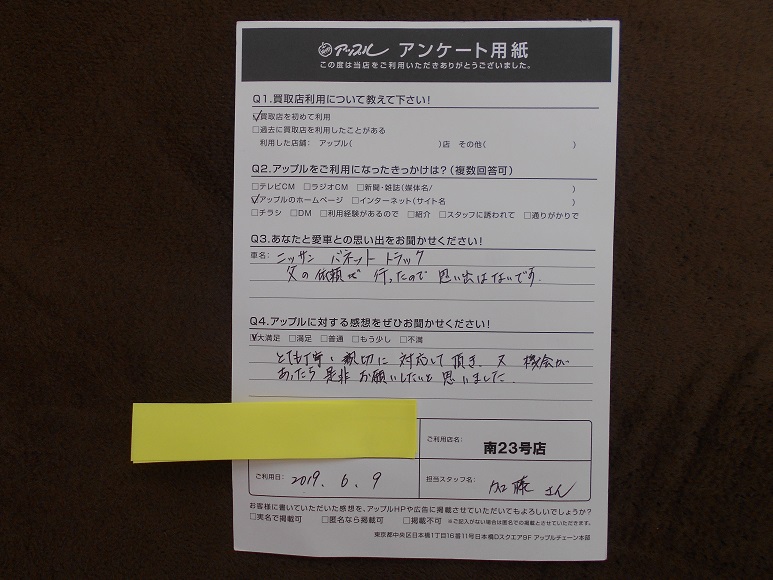 アップル アンケート用紙
この度は当店をご利用いただきありがとうございました。
Q1.買取店利用について教えて下さい!
☑買取店を初めて利用
□過去に買取店を利用したことがある
利用した店舗: アップル( )店 その他( )
Q2.アップルをご利用になったきっかけは?(複数回答可)
□テレビCM □ラジオCM □新聞・雑誌(媒体名/ )
☑アップルのホームページ □インターネット(サイト名 )
□チラシ □DM □利用経験があるので □紹介 □スタッフに誘われて □通りがかりで
Q3.あなたと愛車との思い出をお聞かせください!
車名: ニッサン バネット トラック
父の依頼で 行ったので 思い出はないです.
Q4.アップルに対する感想をぜひお聞かせください!
☑大満足 □満足 □普通 □もう少し □不満
とても丁寧い親切に 対応して頂き、又 機会が
あったら 是非 お願いしたいと 思いました.
ご利用店名: 南23号店
ご利用日: 2019. 6. 9
担当スタッフ名: 加藤 さん
お客様に書いていただいた感想を、アップルHPや広告に掲載させていただいてもよろしいでしょうか?
□実名で掲載可 □匿名なら掲載可 □掲載不可 ※ご記入がない場合は匿名での掲載とさせていただきます。
東京都中央区日本橋1丁目16番11号日本橋Dスクエア9F アップルチェーン本部